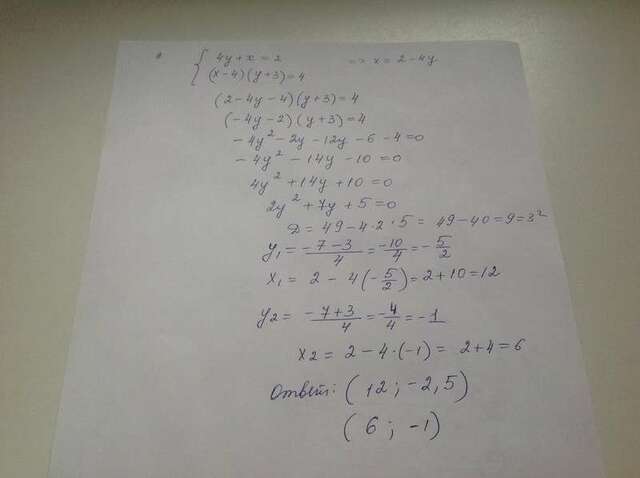 { 4y + x = 2 => x = 2 - 4y
(x - 4)(y + 3) = 4
(2 - 4y - 4)(y + 3) = 4
(-4y - 2)(y + 3) = 4
-4y² - 2y - 12y - 6 - 4 = 0
-4y² - 14y - 10 = 0
4y² + 14y + 10 = 0
2y² + 7y + 5 = 0
D = 49 - 4·2·5 = 49 - 40 = 9 = 3²
y₁ = (-7 - 3)/4 = -10/4 = -5/2
x₁ = 2 - 4(-5/2) = 2 + 10 = 12
y₂ = (-7 + 3)/4 = -4/4 = -1
x₂ = 2 - 4·(-1) = 2 + 4 = 6
Ответ: (12; -2,5)
(6; -1)